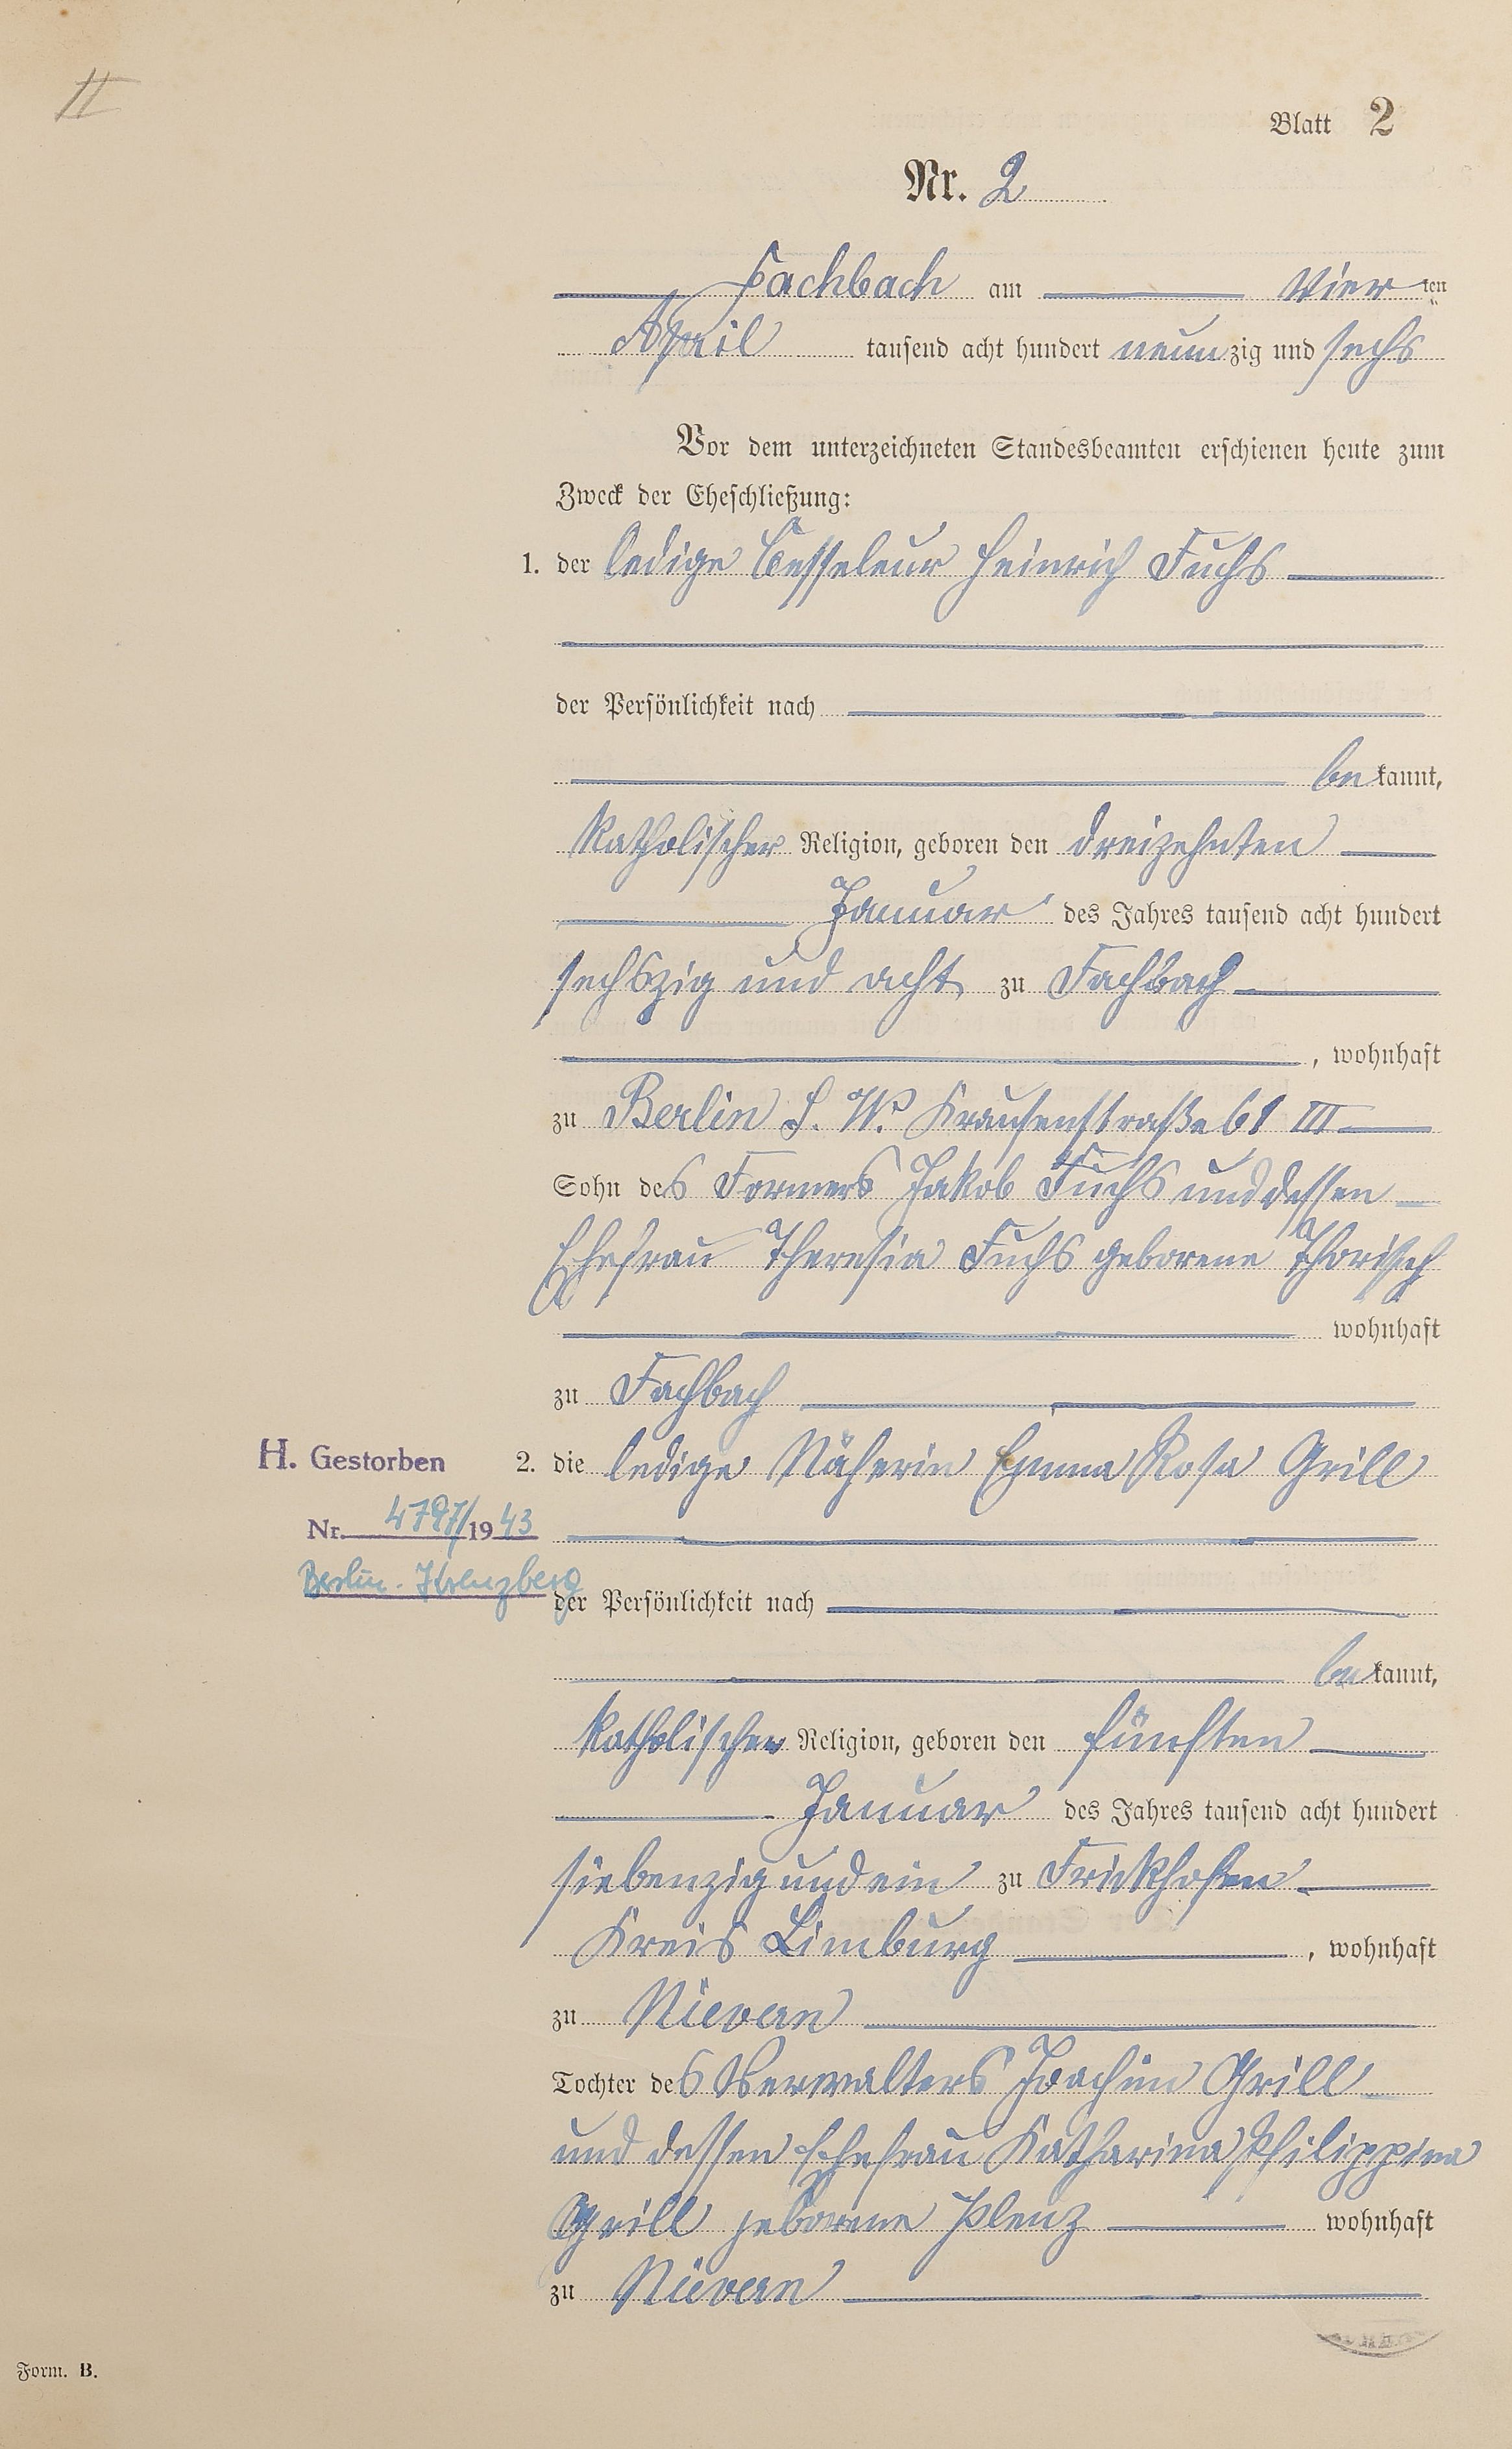 II
Blatt 2
Nr. 2
Fachbach am Vierten
April tausend acht hundert neunzig und sechs
Vor dem unterzeichneten Standesbeamten erschienen heute zum
Zweck der Eheschließung:
1. der ledige Heinrich Fuchs
der Persönlichkeit nach
bekannt,
katholischer Religion, geboren den dreizehnten
Januar des Jahres tausend acht hundert
sechszig und acht zu Fachbach
, wohnhaft
zu Berlin S. W. Krausenstraße 61 III
Sohn des Formers Jakob Fuchs und dessen
Ehefrau Theresia Fuchs geborene
wohnhaft
zu Fachbach
H. Gestorben
Nr. 4797/1943
Berlin-Kreuzberg
2. die ledige Näherin Emma Rosa Grill
der Persönlichkeit nach
bekannt,
katholischer Religion, geboren den fünften
Januar des Jahres tausend acht hundert
siebenzig und ein zu Frickhofen
Kreis Limburg , wohnhaft
zu Nievern
Tochter des Verwalters Joachim Grill
und dessen Ehefrau Katharina Philippina
Grill geborene Plenz wohnhaft
zu Nievern
Form. B.